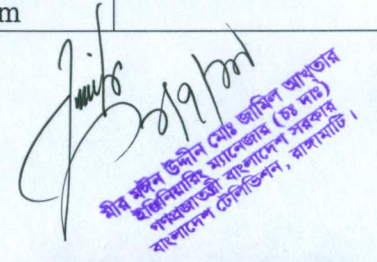 m
মীর মঈন উদ্দীন মোঃ জামিল আখ্তার
ইঞ্জিনিয়ারিং ম্যানেজার (চঃ দাঃ)
গণপ্রজাতন্ত্রী বাংলাদেশ সরকার
বাংলাদেশ টেলিভিশন, রাঙ্গামাটি।